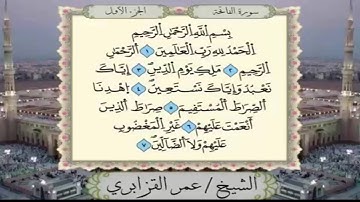 سورة الفاتحة الجزء الأول
بِسْمِ اللَّهِ الرَّحْمَٰنِ الرَّحِيمِ
الْحَمْدُ لِلَّهِ رَبِّ الْعَالَمِينَ ١ الرَّحْمَٰنِ
الرَّحِيمِ ٢ مَلِكِ يَوْمِ الدِّينِ ٣ إِيَّاكَ
نَعْبُدُ وَإِيَّاكَ نَسْتَعِينُ ٤ اهْدِنَا
الصِّرَاطَ الْمُسْتَقِيمَ ٥ صِرَاطَ الَّذِينَ
أَنْعَمْتَ عَلَيْهِمْ ٦ غَيْرِ الْمَغْضُوبِ
عَلَيْهِمْ وَلَا الضَّالِّينَ ٧
الشيخ / عمر القزابري